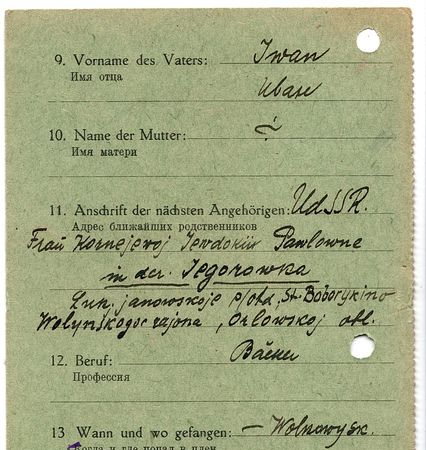 9. Vorname des Vaters: Iwan
Имя отца
Иван
10. Name der Mutter:
Имя матери
11. Anschrift der nächsten Angehörigen: UdSSR.
Адрес ближайших родственников
Frau Kornejewoj Jewdokiw Pawlowne
in der. Jegorowka
janowskoje p/otd, St. Boborykino
Wolynskogo rajona, Orlowskoj obl.
12. Beruf: Bauer
Профессия
13 Wann und wo gefangen: – Wolnowysk.
Когда и где попал в плен